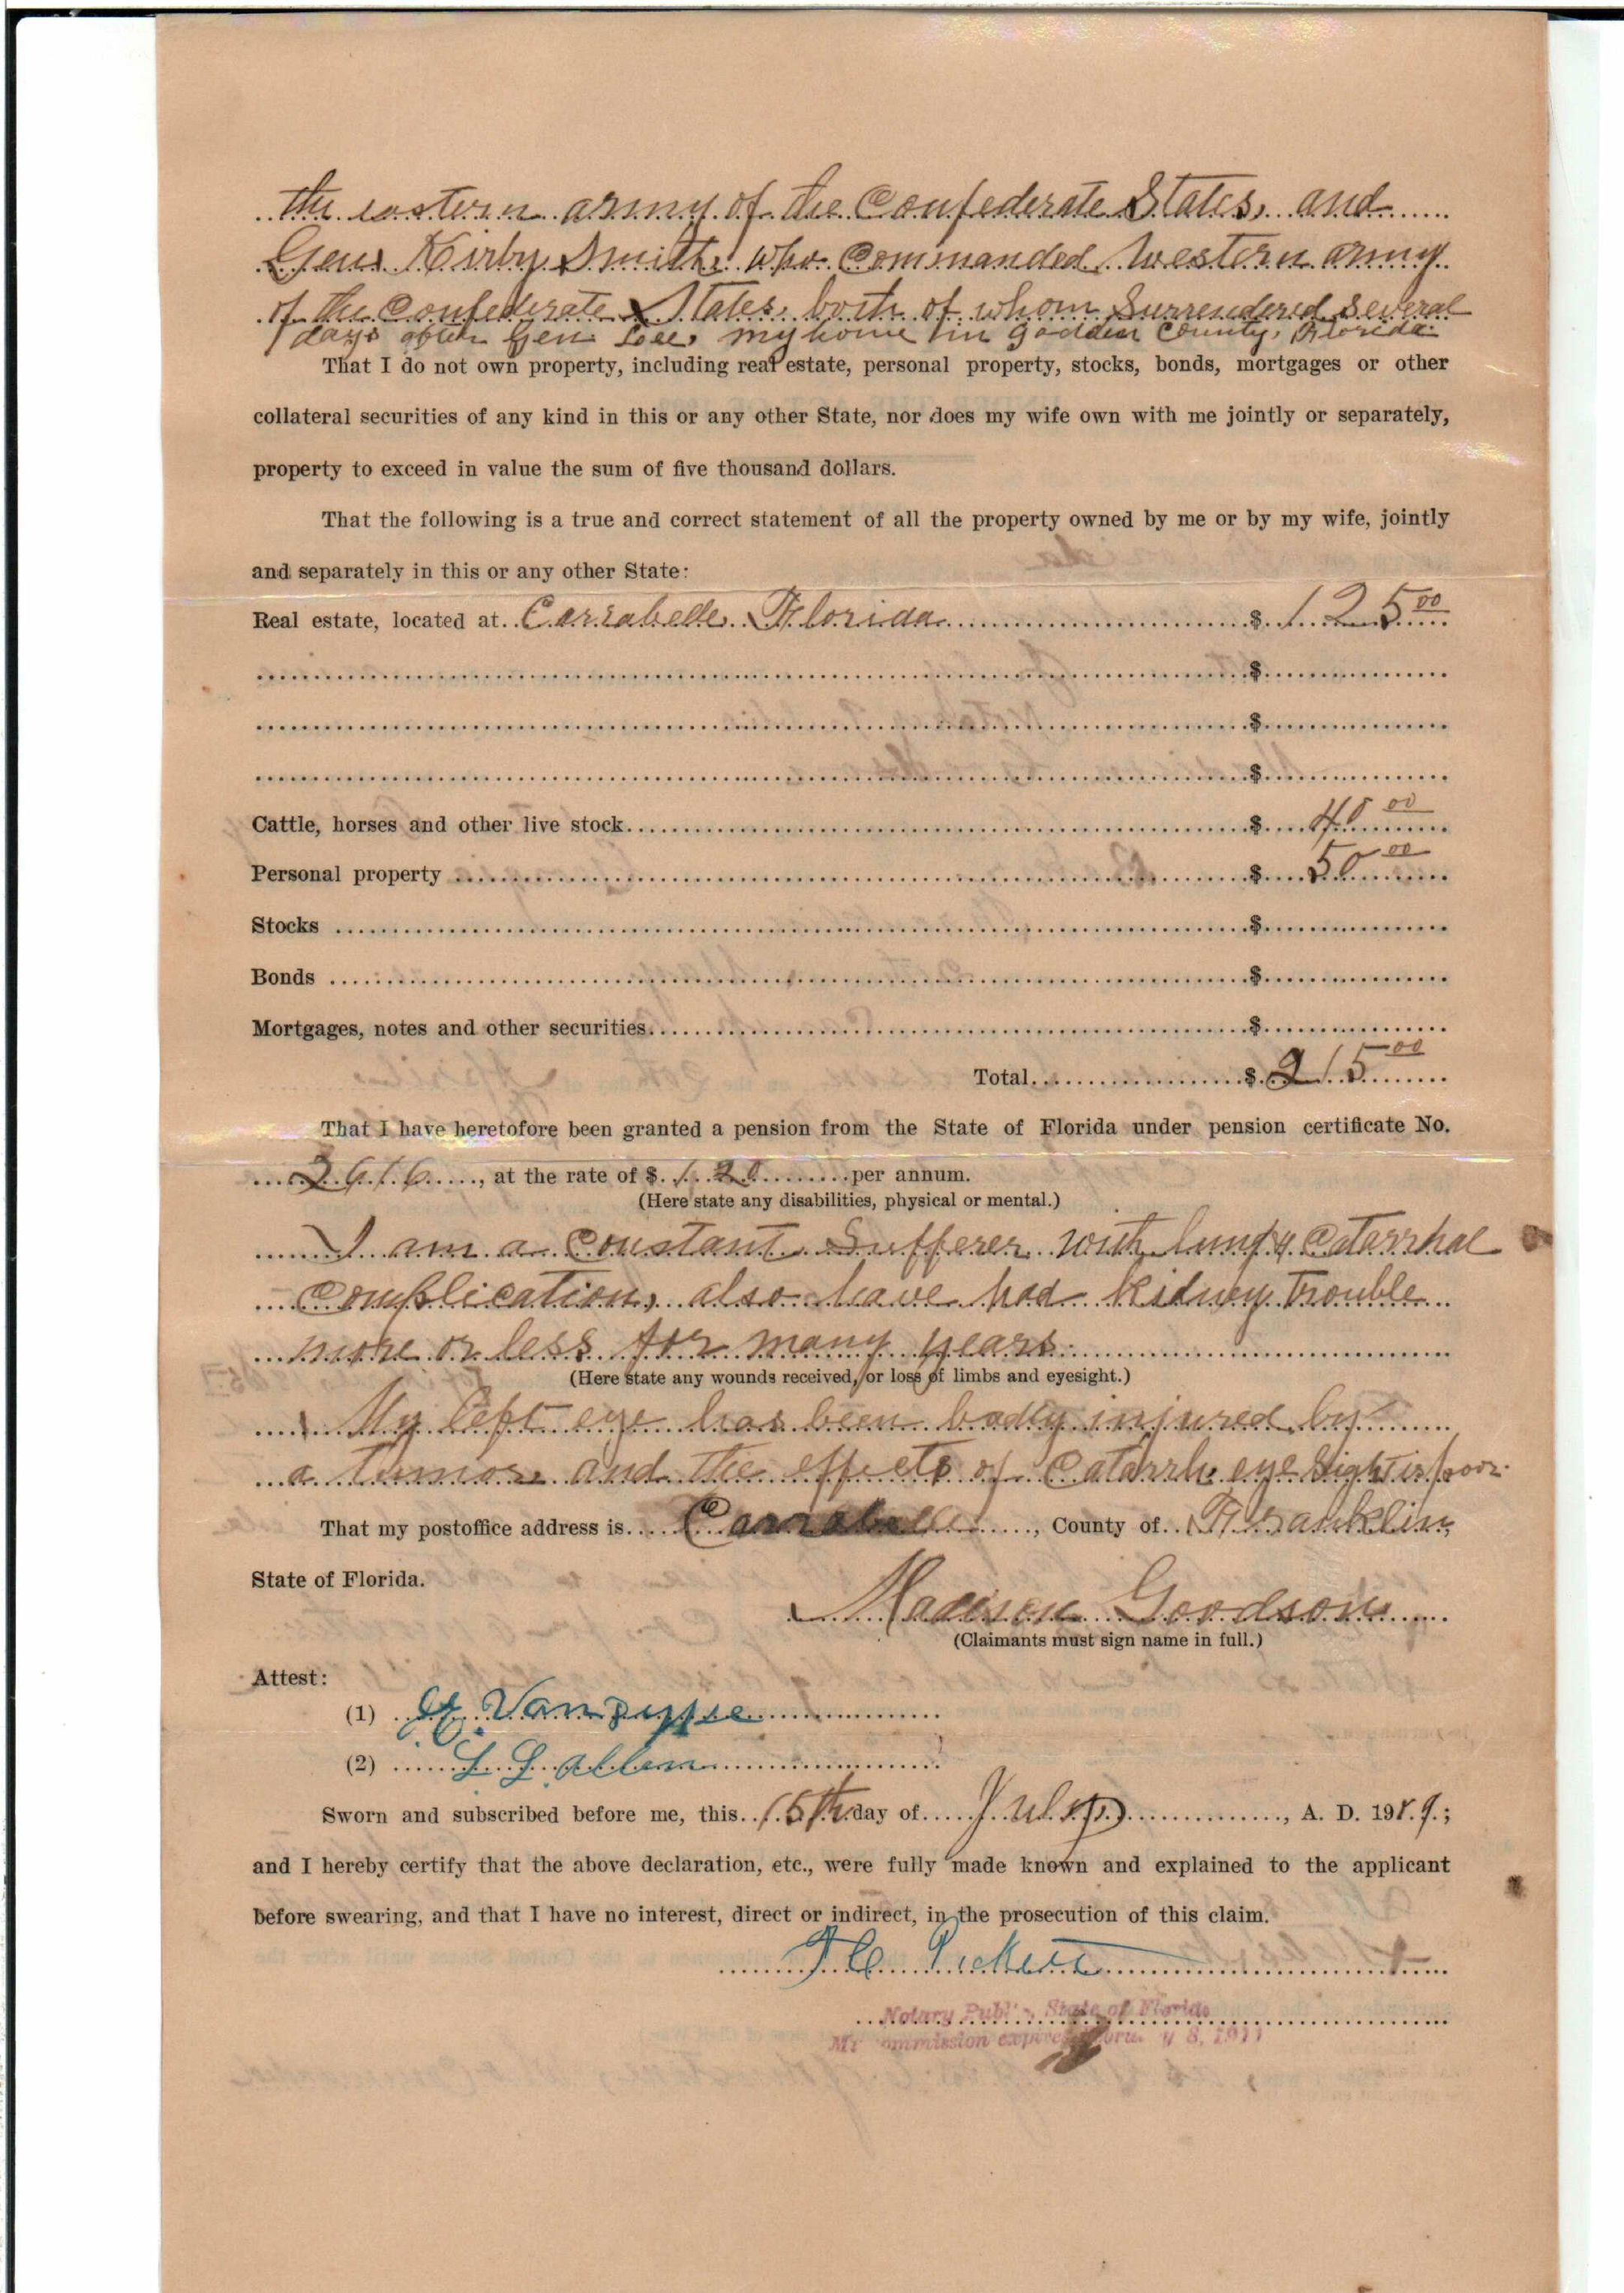 the eastern army of the Confederate States, and
Gen. Kirby Smith, who Commanded Western army
of the Confederate States, both of whom Surrendered Several
days after Gen Lee, my home in Gadden County, Florida.
That I do not own property, including real estate, personal property, stocks, bonds, mortgages or other
collateral securities of any kind in this or any other State, nor does my wife own with me jointly or separately,
property to exceed in value the sum of five thousand dollars.
That the following is a true and correct statement of all the property owned by me or by my wife, jointly
and separately in this or any other State:
Real estate, located at Carrabelle, Florida $ 125 00
$
$
$
Cattle, horses and other live stock $ 40 00
Personal property $ 50 00
Stocks $
Bonds $
Mortgages, notes and other securities $
Total $ 215 00
That I have heretofore been granted a pension from the State of Florida under pension certificate No.
2616, at the rate of $ 120 per annum.
(Here state any disabilities, physical or mental.)
I am a Constant Sufferer with lung & Catarrhal
Complication, also have had Kidney Trouble
more or less for many years.
(Here state any wounds received, or loss of limbs and eyesight.)
My left eye has been badly injured by
a tumor and the effects of Catarrh, eye sight is poor.
That my postoffice address is Carrabelle, County of Franklin,
State of Florida.
Madison Goodson
(Claimants must sign name in full.)
Attest:
(1)
(2) L L Allen
Sworn and subscribed before me, this 15th day of July, A. D. 1909;
and I hereby certify that the above declaration, etc., were fully made known and explained to the applicant
before swearing, and that I have no interest, direct or indirect, in the prosecution of this claim.
Pickett
Notary Public, State of Florida
My commission expires February 8, 1911